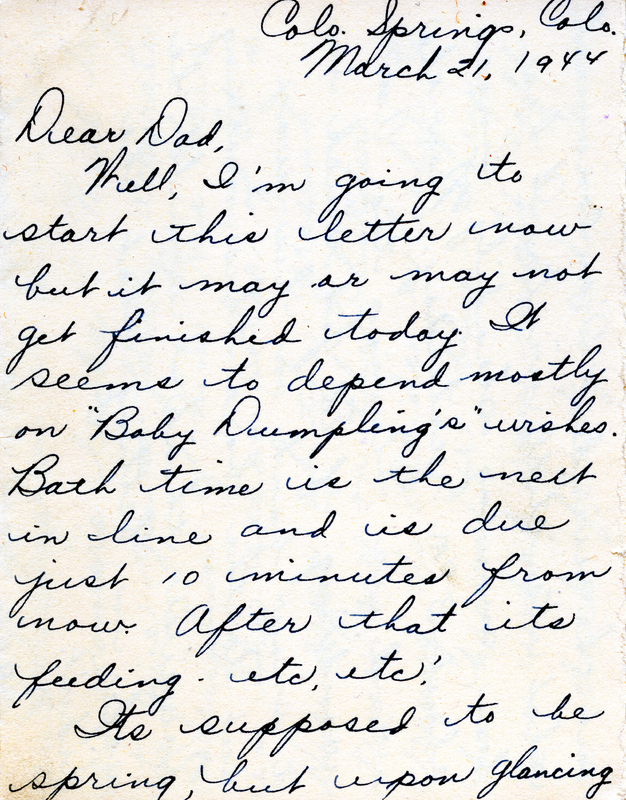 Colo. Springs, Colo.
March 21, 1944
Dear Dad,
Well, I'm going to
start this letter now
but it may or may not
get finished today. It
seems to depend mostly
on "Baby Dumpling's" wishes.
Bath time is the next
in line and is due
just 10 minutes from
now. After that its
feeding. etc, etc!
Its supposed to be
spring, but upon glancing